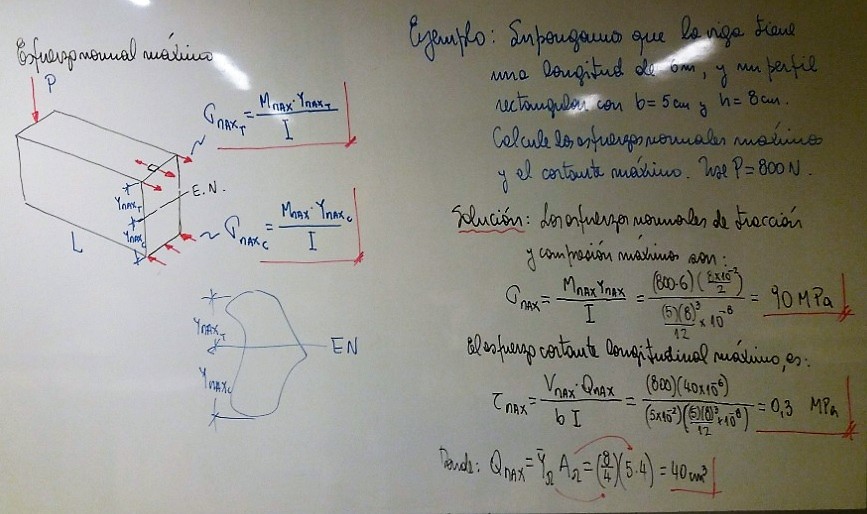 Esfuerzo normal máximo
P
σMAX_T = MMAX·YMAX_T / I
E.N.
YMAX_T
YMAX_C
L
σMAX_C = MMAX·YMAX_C / I
YMAX_T
EN
YMAX_C
Ejemplo: Supongamos que la viga tiene
una longitud de 6m, y un perfil
rectangular con b= 5cm y h= 8cm.
Calcule los esfuerzos normales máximos
y el cortante máximo. Use P=800N.
Solución: Los esfuerzos normales de tracción
y compresión máximos son:
σMAX = MMAX YMAX / I = (800·6)(8x10⁻²/2) / ((5)(8)³/12 x10⁻⁸) = 90 MPa
El esfuerzo cortante longitudinal máximo, es:
τMAX = VMAX·QMAX / b I = (800)(40x10⁻⁶) / (5x10⁻²)((5)(8)³/12 x10⁻⁸) = 0,3 MPa
Donde: QMAX = ȲΩ AΩ = (8/4)(5·4) = 40cm³